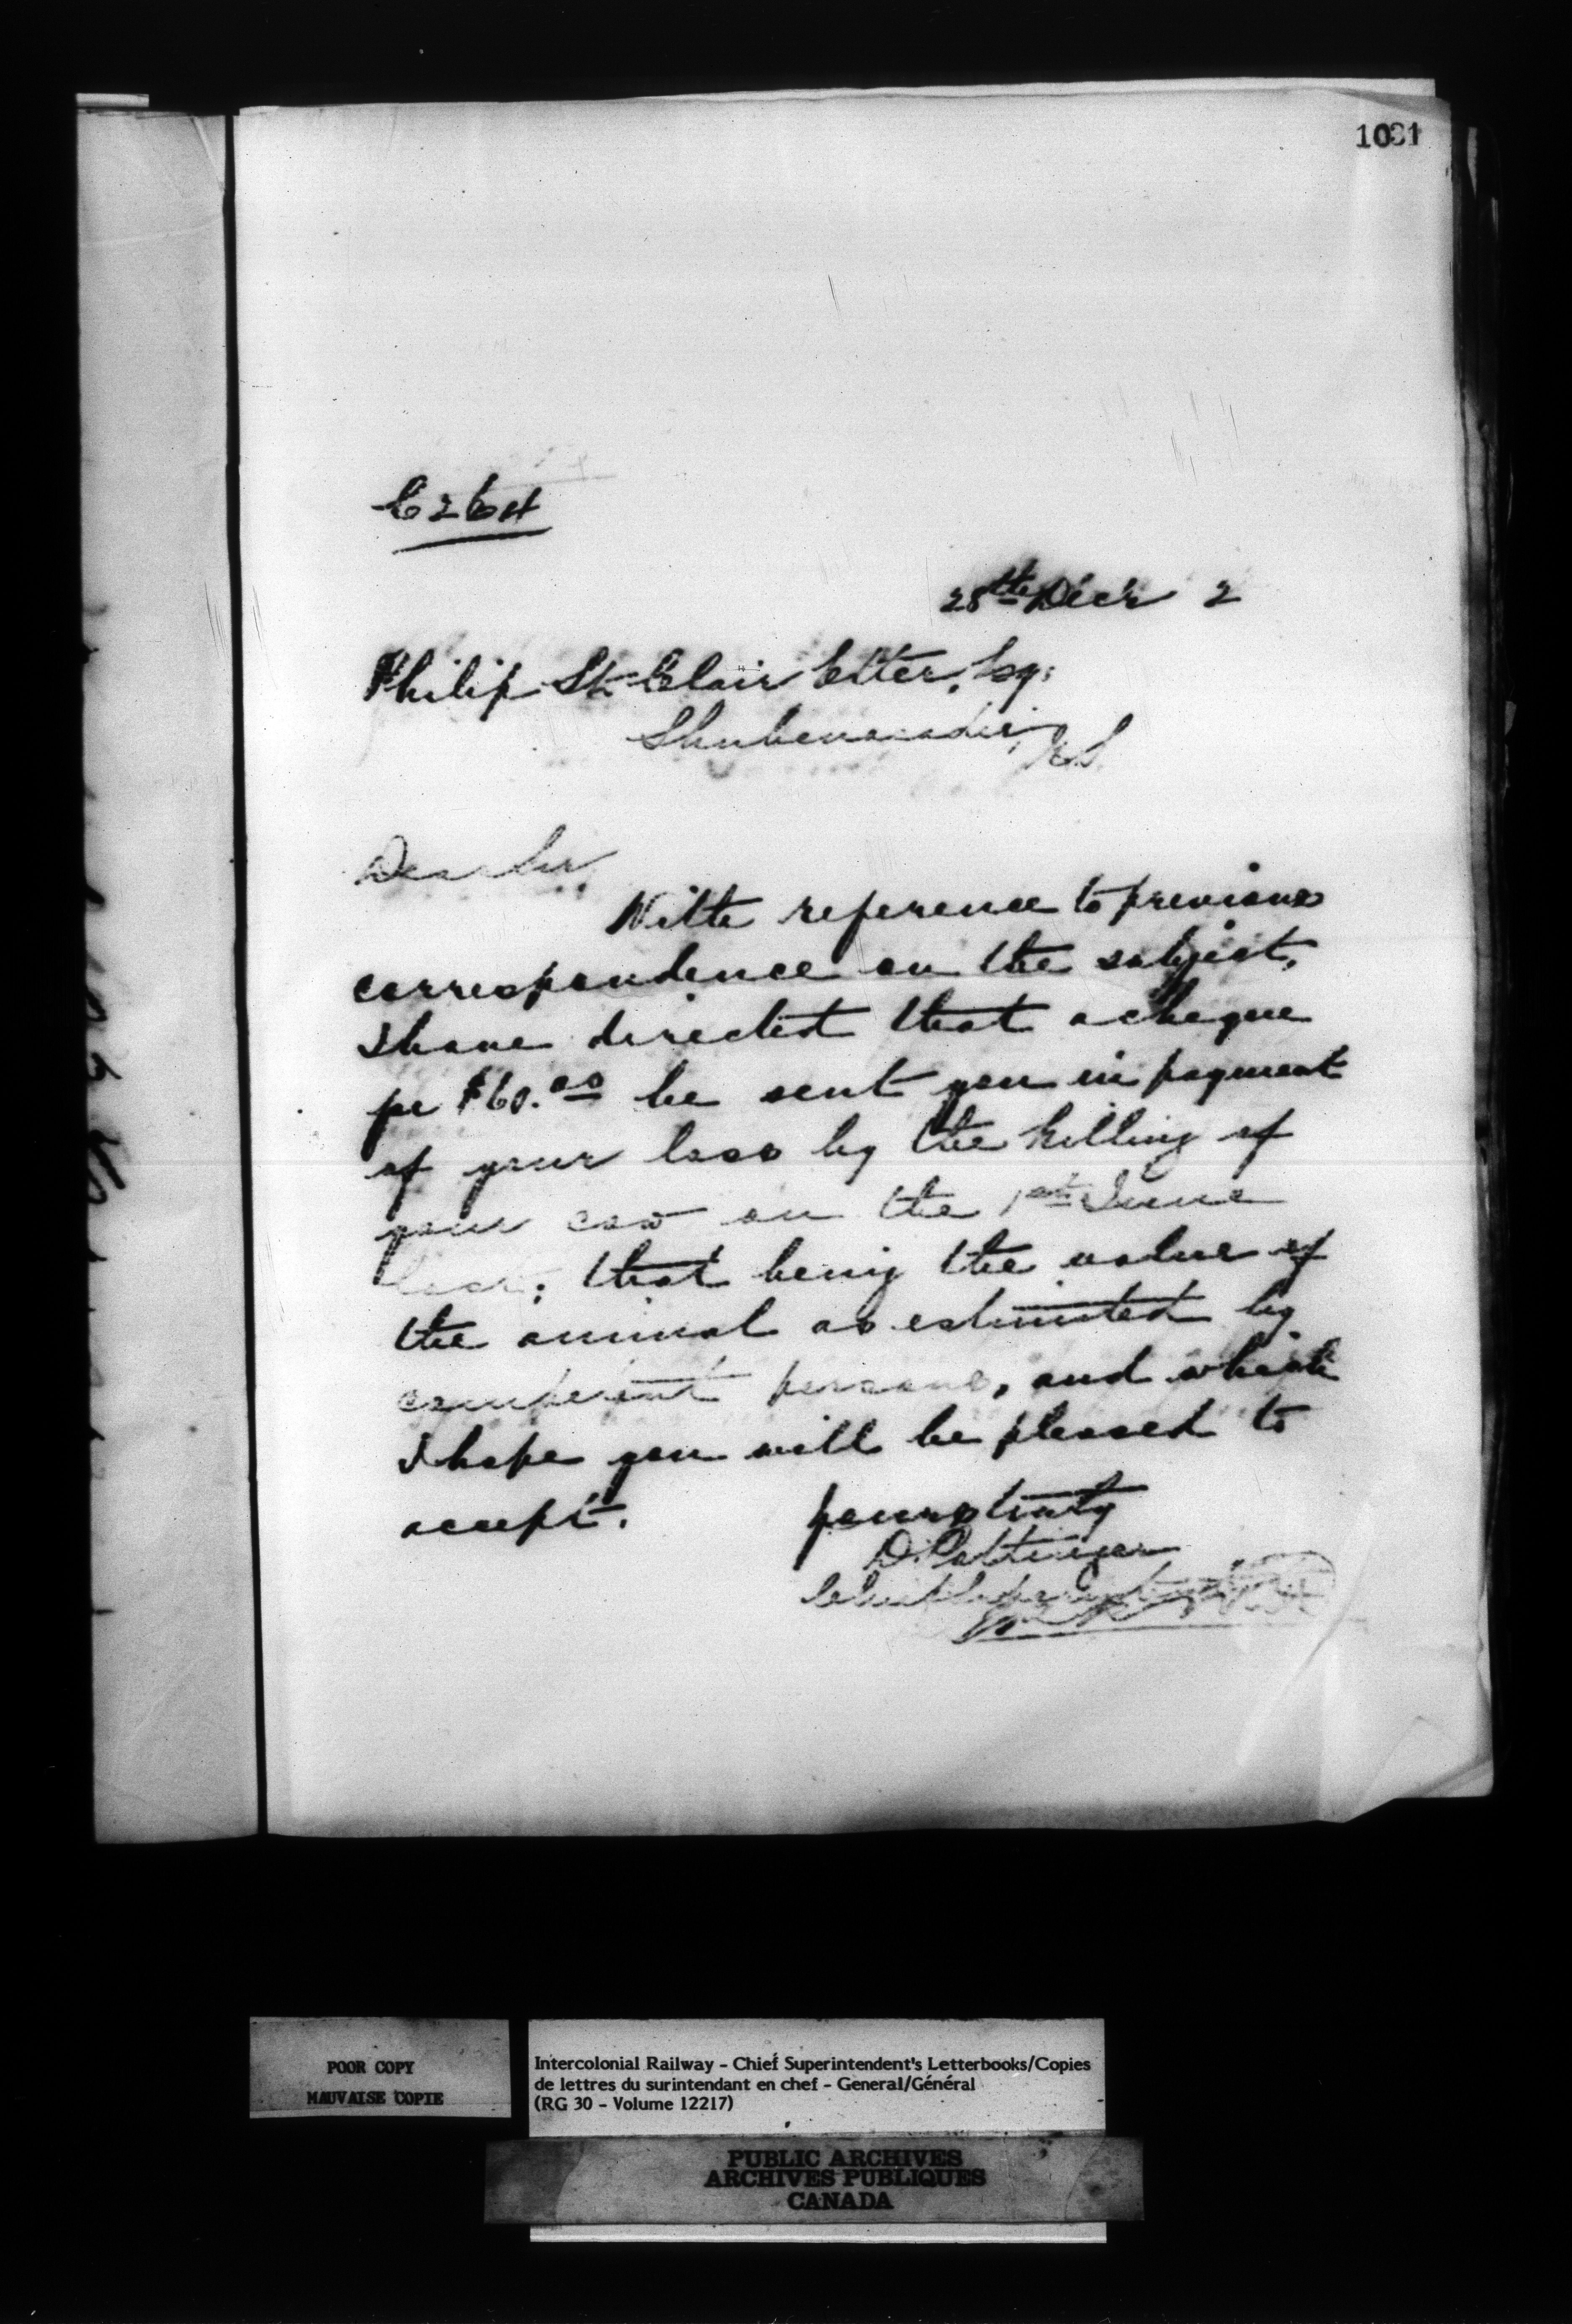 1031
C264
28th Dec'r 2
Philip St. Clair Etter, Esq:
Shubenacadie, N.S.
Dear Sir,
With reference to previous
correspondence on the subject,
I have directed that a cheque
for $60.00 be sent you in payment
of your loss by the killing of
your cow on the 1st June
last; that being the value of
the animal as estimated by
competent persons, and which
I hope you will be pleased to
accept.
yours truly
D. Pottinger
Chief Superintendent
POOR COPY
MAUVAISE COPIE
Intercolonial Railway - Chief Superintendent's Letterbooks/Copies
de lettres du surintendant en chef - General/Général
(RG 30 - Volume 12217)
PUBLIC ARCHIVES
ARCHIVES PUBLIQUES
CANADA